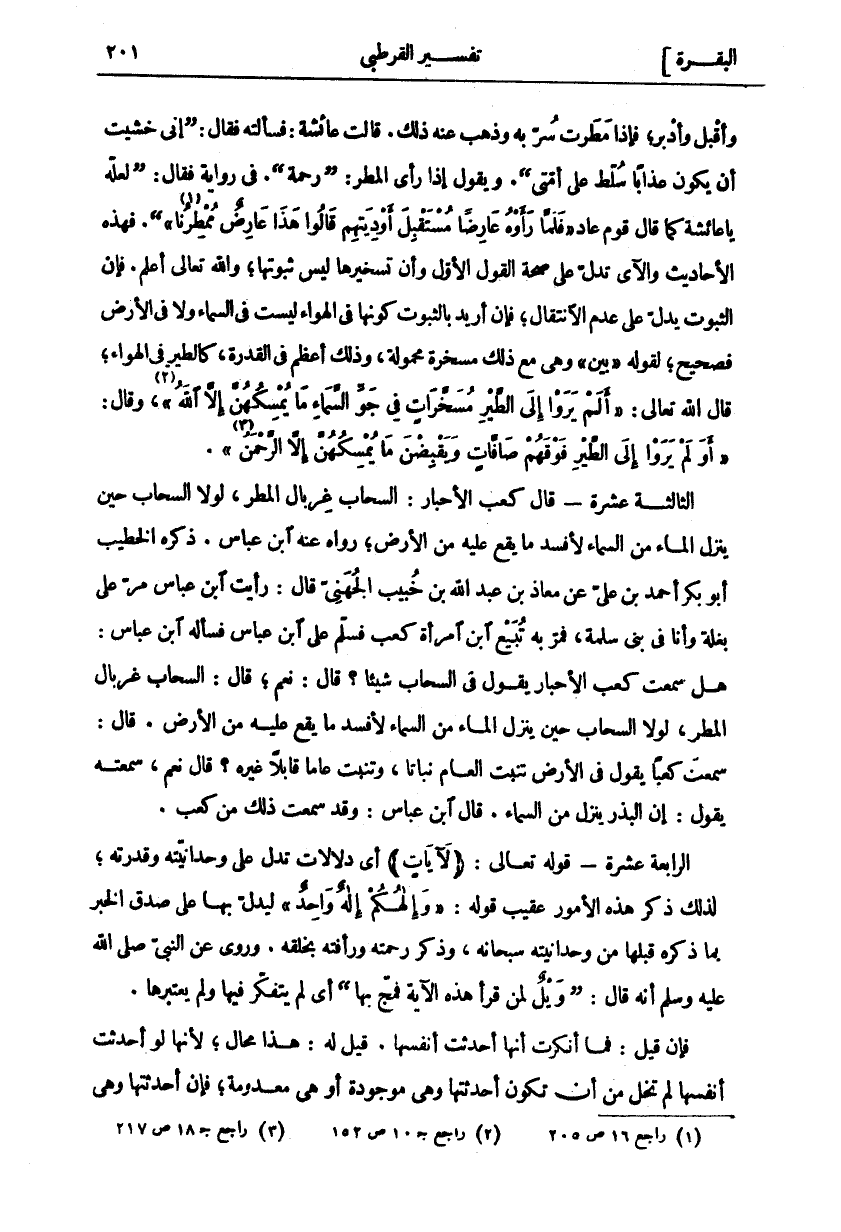 البقـــرة ] تفســـير القرطبي ٢٠١
وأقبل وأدبر؛ فإذا مَطَرت سُرّ به وذهب عنه ذلك. قالت عائشة: فسألته فقال: ”إنى خشيت
أن يكون عذابًا سُلّط على أمّتى“. ويقول إذا رأى المطر: ”رحمة“. فى رواية فقال: ”لعلّه
ياعائشة كما قال قوم عاد «فَلَمَّا رَأَوْهُ عَارِضًا مُسْتَقْبِلَ أَوْدِيَتِهِم قَالُوا هَذَا عَارِضٌ مُمْطِرُنَا(١)»“. فهذه
الأحاديث والآى تدلّ على صحة القول الأوّل وأن تسخيرها ليس ثبوتها؛ والله تعالى أعلم. فإن
الثبوت يدلّ على عدم الآنتقال؛ فإن أريد بالثبوت كونها فى الهواء ليست فى السماء ولا فى الأرض
فصحيح؛ لقوله «بين» وهى مع ذلك مسخرة محمولة، وذلك أعظم فى القدرة، كالطير فى الهواء؛
قال الله تعالى: «أَلَمْ يَرَوْا إِلَى الطَّيْرِ مُسَخَّرَاتٍ فِي جَوِّ السَّمَاءِ مَا يُمْسِكُهُنَّ إِلَّا ٱللهُ(٢)»، وقال:
«أَوَ لَمْ يَرَوْا إِلَى الطَّيْرِ فَوْقَهُمْ صَافَّاتٍ وَيَقْبِضْنَ مَا يُمْسِكُهُنَّ إِلَّا الرَّحْمَنُ(٣)» .
الثالثـــة عشرة — قال كعب الأحبار : السحاب غربال المطر ، لولا السحاب حين
ينزل المـاء من السماء لأفسد ما يقع عليه من الأرض؛ رواه عنه ٱبن عباس . ذكره الخطيب
أبو بكر أحمد بن علىّ عن معاذ بن عبد الله بن خُبيب الجُهَنِىّ قال : رأيت ٱبن عباس مرّ على
بغلة وأنا فى بنى سلمة، فمرّ به تُبَيْع ٱبن ٱمرأة كعب فسلّم على ٱبن عباس فسأله ٱبن عباس :
هـل سمعت كعب الأحبار يقـول فى السحاب شيئا ؟ قال : نعم ؛ قال : السحاب غربال
المطر ، لولا السحاب حين ينزل المـاء من السماء لأفسد ما يقع عليـه من الأرض . قال :
سمعتَ كعبًا يقول فى الأرض تنبت العـام نباتا ، وتنبت عاما قابلًا غيره ؟ قال نعم ، سمعتـه
يقول : إن البذر ينزل من السماء . قال ٱبن عباس : وقد سمعت ذلك من كعب .
الرابعة عشرة — قوله تعـالى : ﴿لَآيَاتٍ﴾ أى دلالات تدل على وحدانيّته وقدرته ؛
لذلك ذكر هذه الأمور عقيب قوله : «وَإِلٰهُـكُمْ إِلٰهٌ وَاحِدٌ» ليدلّ بهـا على صدق الخبر
بما ذكره قبلها من وحدانيته سبحانه ، وذكر رحمته ورأفته بخلقه . وروى عن النبىّ صلى الله
عليه وسلم أنه قال : ”وَيْلٌ لمن قرأ هذه الآية فمجّ بها“ أى لم يتفكّر فيها ولم يعتبرها .
فإن قيل : فمـا أنكرت أنها أحدثت أنفسها . قيل له : هـذا محال ؛ لأنها لو أحدثت
أنفسها لم تخل من أن تكون أحدثتها وهى موجودة أو هى معـدومة؛ فإن أحدثتها وهى
(١) راجع ١٦ ص ٢٠٥ (٢) راجع جـ ١٠ ص ١٥٢ (٣) راجع جـ ١٨ ص ٢١٧